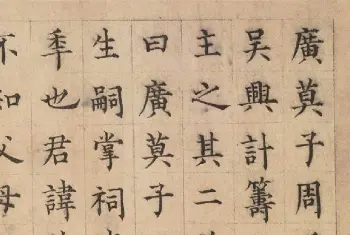 廣莫子周
吳興計籌
主之其二
曰廣莫子
生嗣掌祠
秊也君諱
不知父母